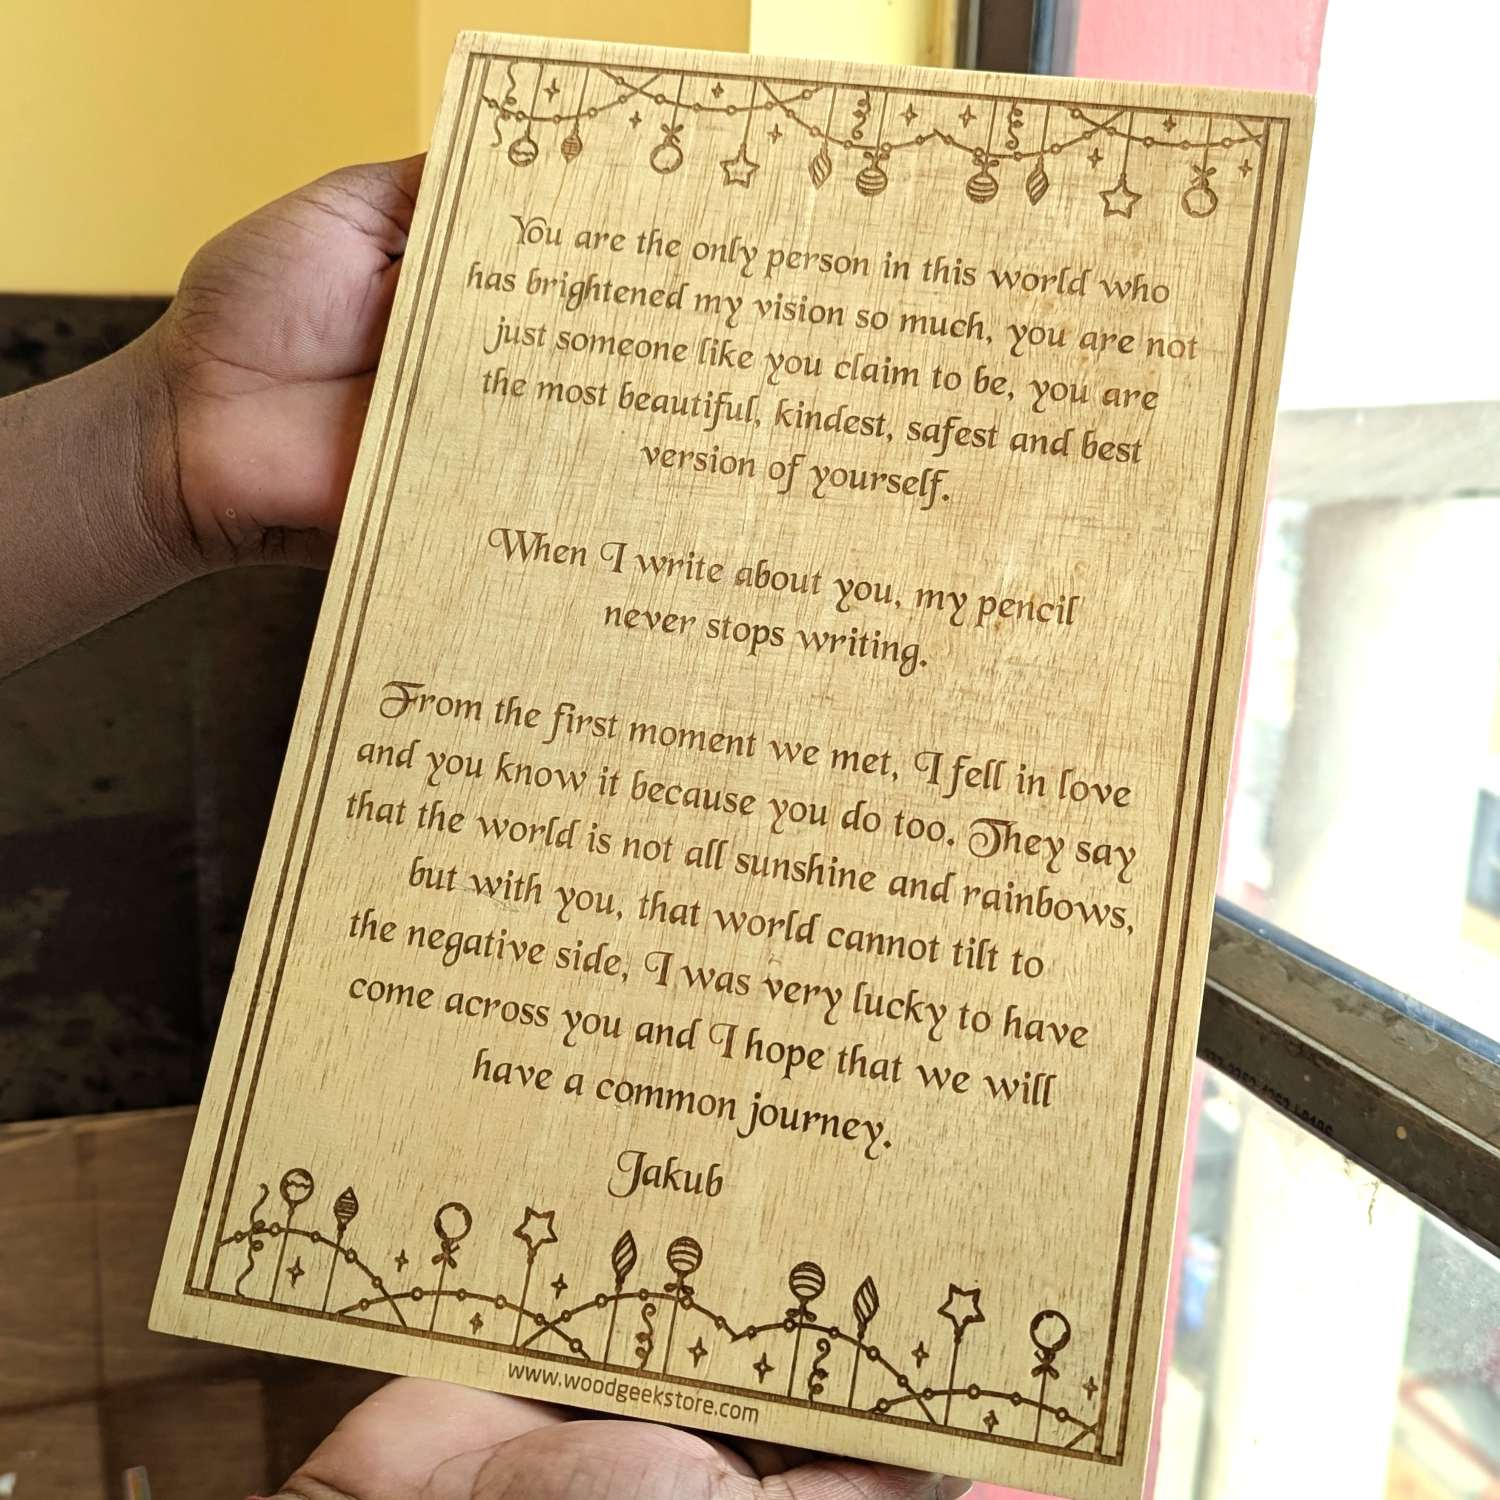 You are the only person in this world who
has brightened my vision so much, you are not
just someone like you claim to be, you are
the most beautiful, kindest, safest and best
version of yourself.
When I write about you, my pencil
never stops writing.
From the first moment we met, I fell in love
and you know it because you do too. They say
that the world is not all sunshine and rainbows,
but with you, that world cannot tilt to
the negative side, I was very lucky to have
come across you and I hope that we will
have a common journey.
Jakub
www.woodgeekstore.com